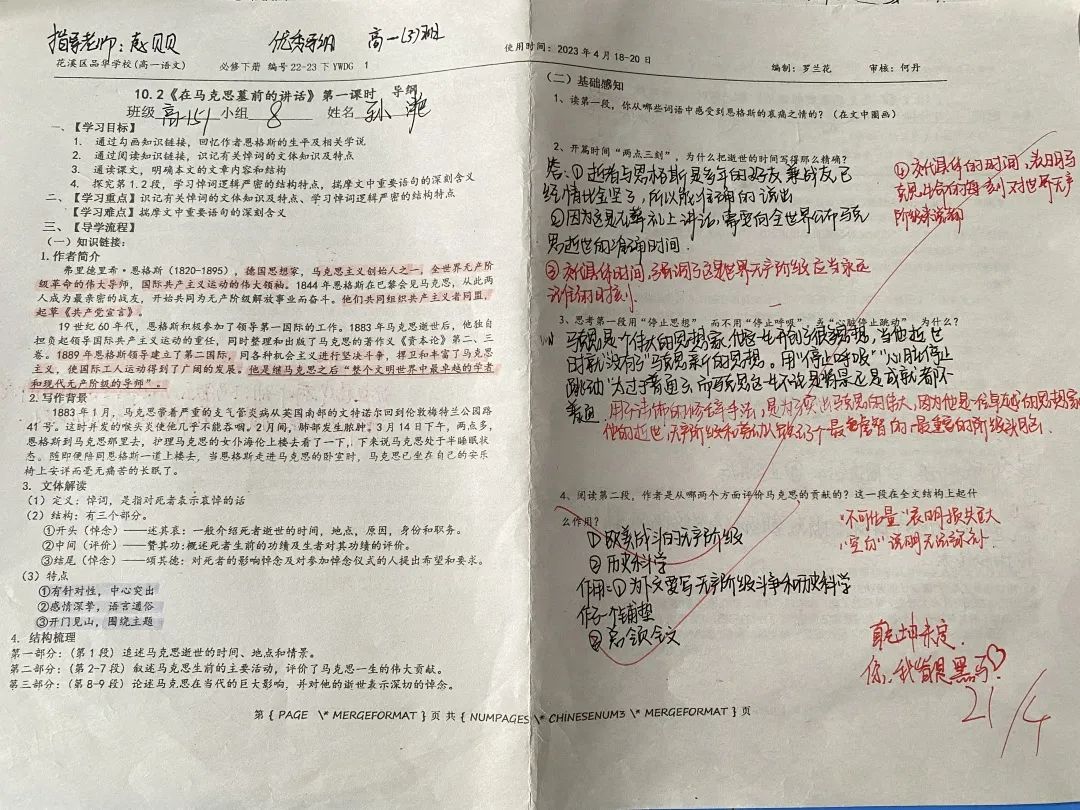 指导老师：赵贝贝 优秀导纲 高一(3)班
花溪区品华学校(高一语文) 必修下册 编号 22-23 下 YWDG 1
10.2《在马克思墓前的讲话》第一课时 导纲
班级 高一(5) 小组 8 姓名 孙滟
一、【学习目标】
1. 通过勾画知识链接，回忆作者恩格斯的生平及相关学说
2. 通过阅读知识链接，识记有关悼词的文体知识及特点
3. 通读课文，明确本文的文章内容和结构
4. 探究第 1.2 段，学习悼词逻辑严密的结构特点，揣摩文中重要语句的深刻含义
二、【学习重点】识记有关悼词的文体知识及特点、学习悼词逻辑严密的结构特点
【学习难点】揣摩文中重要语句的深刻含义
三、【导学流程】
（一）知识链接：
1.作者简介
弗里德里希·恩格斯（1820-1895），德国思想家，马克思主义创始人之一，全世界无产阶
级革命的伟大导师，国际共产主义运动的伟大领袖。1844 年恩格斯在巴黎会见马克思，从此两
人成为最亲密的战友，开始共同为无产阶级解放事业而奋斗。他们共同组织共产主义者同盟，
起草《共产党宣言》。
19 世纪 60 年代，恩格斯积极参加了领导第一国际的工作。1883 年马克思逝世后，他独自
担负起领导国际共产主义运动的重任，同时整理和出版了马克思的著作《资本论》第二、三
卷。1889 年恩格斯领导建立了第二国际，同各种机会主义进行坚决斗争，捍卫和丰富了马克思
主义，使国际工人运动得到了广阔的发展。他是继马克思之后“整个文明世界中最卓越的学者
和现代无产阶级的导师”。
2.写作背景
1883 年 1 月，马克思带着严重的支气管炎病从英国南部的文特诺尔回到伦敦梅特兰公园路
41 号。这时并发的喉头炎使他几乎不能吞咽。2 月间，肺部发生脓肿。3 月 14 日下午，两点多，
恩格斯到马克思那里去，护理马克思的女仆海伦上楼去看了一下，下来说马克思处于半睡眠状
态。随即便陪同恩格斯一道上楼去，当恩格斯走进马克思的卧室时，马克思已坐在自己的安乐
椅上安详而毫无痛苦的长眠了。
3. 文体解读
（1）定义：悼词，是指对死者表示哀悼的话
（2）结构：有三个部分。
①开头（悼念）——述其哀：一般介绍死者逝世的时间，地点，原因，身份和职务。
②中间（评价）——赞其功：概述死者生前的功绩及生者对其功绩的评价。
③结尾（悼念）——颂其德：对死者的影响悼念及对参加悼念仪式的人提出希望和要求。
（3）特点
①有针对性，中心突出
②感情深挚，语言通俗
③开门见山，围绕主题
4. 结构梳理
第一部分：（第 1 段）追述马克思逝世的时间、地点和情景。
第二部分：（第 2-7 段）叙述马克思生前的主要活动，评价了马克思一生的伟大贡献。
第三部分：（第 8-9 段）论述马克思在当代的巨大影响，并对他的逝世表示深切的悼念。
第 { PAGE \* MERGEFORMAT } 页 共 { NUMPAGES \* CHINESENUM3 \* MERGEFORMAT } 页
使用时间：2023 年 4 月 18-20 日
编制：罗兰花 审核：何丹
（二）基础感知
1、读第一段，你从哪些词语中感受到恩格斯的哀痛之情的？（在文中圈画）
2、开篇时间“两点三刻”，为什么把逝世的时间写得那么精确？
答：①逝者与恩格斯是多年的好友兼战友，已
经情比金坚了，所以能准确的说出
②因为这是在葬礼上讲话，需要向全世界公布马克
思逝世的准确时间。
③交代具体时间，强调了这是世界无产阶级应当永远
记住的时刻。
④交代具体的时间，表明马
克思生命的每一刻对世界无产
阶级来说都
3、思考第一段用“停止思想”，而不用“停止呼吸”或“心脏停止跳动”，为什么？
马克思是个伟大的思想家，他这一生开创了很多思想，当他逝世
时就没有了马克思新的思想。用“停止呼吸”“心脏停止
跳动”太过于普通了，而马克思这一生不论是背景还是成就都不
普通
用了讳饰的修辞手法，是为了突出马克思的伟大，因为他是一位卓越的思想家
4、阅读第二段，作者是从哪两个方面评价马克思的贡献的？这一段在全文结构上起什
么作用？
①欧美战斗的无产阶级
②历史科学
作用：①为下文要写无产阶级斗争和历史科学
作了一个铺垫
②总领全文
“不可估量”表明损失巨大
“空白”说明无法弥补
乾坤未定，
你我皆是黑马！
21/4